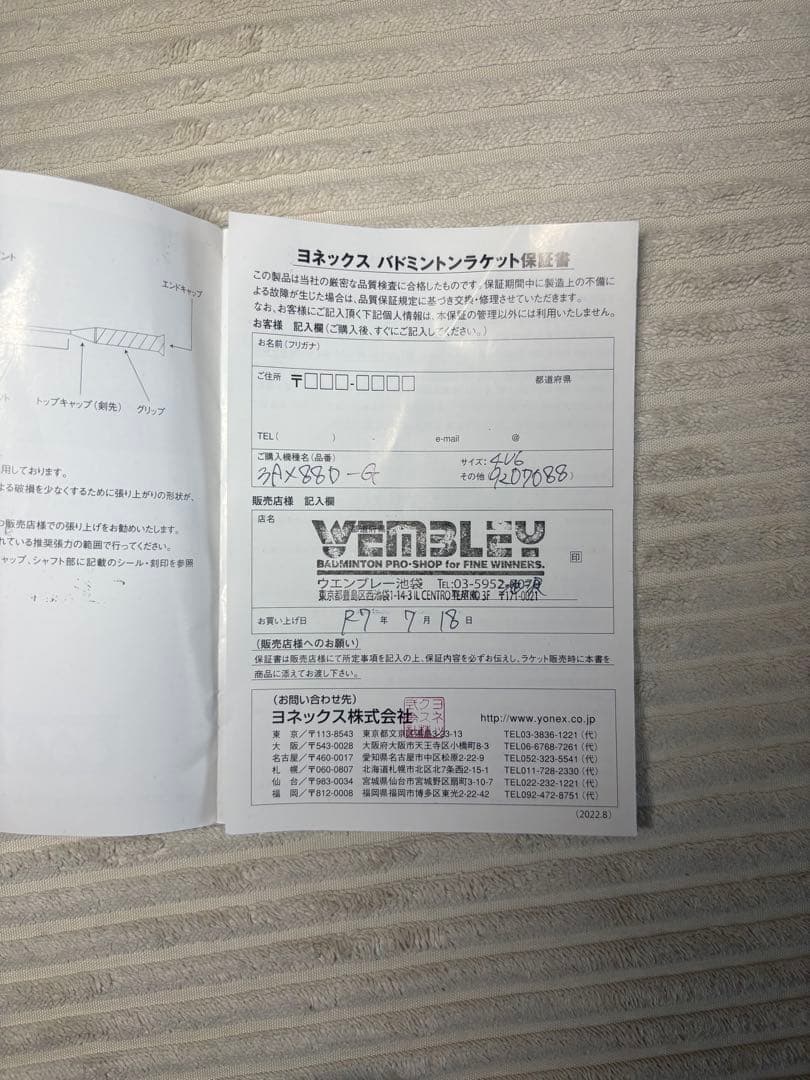 ント
エンドキャップ
トップキャップ(剣先)
グリップ
用しております。
よる破損を少なくするために張り上がりの形状が、
や販売店様での張り上げをお勧めいたします。
れている推奨張力の範囲で行ってください。
ャップ、シャフト部に記載のシール・刻印を参照
ヨネックス バドミントンラケット保証書
この製品は当社の厳密な品質検査に合格したものです。保証期間中に製造上の不備に
よる故障が生じた場合は、品質保証規定に基づき交換・修理させていただきます。
なお、お客様にご記入頂く下記個人情報は、本保証の管理以外には利用いたしません。
お客様 記入欄(ご購入後、すぐにご記入してください。)
お名前(フリガナ)
ご住所 〒□□□-□□□□ 都道府県
TEL( ) - e-mail @
ご購入機種名(品番) サイズ: 4U6
3AX88D-G その他(9207088)
販売店様 記入欄
店名
WEMBLEY
BADMINTON PRO-SHOP for FINE WINNERS.
印
ウエンブレー池袋 TEL:03-5952-
東京都豊島区西池袋1-14-3 IL CENTRO 3F 〒171-0021
お買い上げ日 R7 年 7 月 18 日
(販売店様へのお願い)
保証書は販売店様にて所定事項を記入の上、保証内容を必ずお伝えし、ラケット販売時に本書を
商品に添えてお渡し下さい。
(お問い合わせ先)
ヨネックス株式会社 http://www.yonex.co.jp
東 京/〒113-8543 東京都文京区湯島3-23-13 TEL03-3836-1221(代)
大 阪/〒543-0028 大阪府大阪市天王寺区小橋町8-3 TEL06-6768-7261(代)
名古屋/〒460-0017 愛知県名古屋市中区松原2-22-9 TEL052-323-5541(代)
札 幌/〒060-0807 北海道札幌市北区北7条西2-15-1 TEL011-728-2330(代)
仙 台/〒983-0034 宮城県仙台市宮城野区扇町3-10-7 TEL022-232-1221(代)
福 岡/〒812-0008 福岡県福岡市博多区東光2-22-42 TEL092-472-8751(代)
(2022.8)